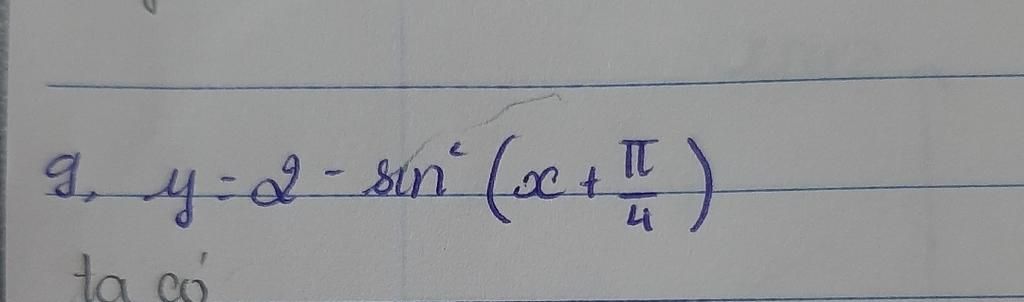 g, y = 2 - sin² (x + π/4)
ta có